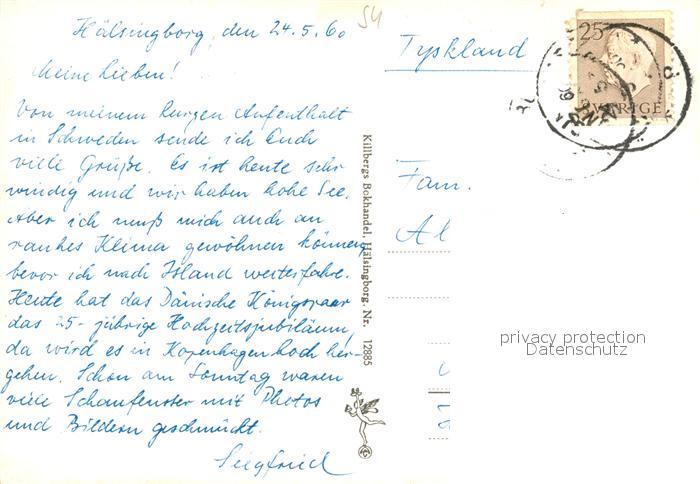 Hälsingborg, den 24.5.60
Meine Lieben!
Von meinem kurzen Aufenthalt
in Schweden sende ich Euch
viele Grüße. Es ist heute sehr
windig und wir haben hohe See.
Aber ich muß mich auch an
rauhes Klima gewöhnen können,
bevor ich nach Island weiterfahre.
Heute hat das Dänische Königspaar
das 25-jährige Hochzeitsjubiläum,
da wird es in Kopenhagen hoch her-
gehen. Schon am Sonntag waren
viele Schaufenster mit Photos
und Bildern geschmückt.
Siegfried
54
Killbergs Bokhandel, Hälsingborg. Nr. 12885
Tyskland
25
SVERIGE
Fam.
Al
privacy protection
Datenschutz